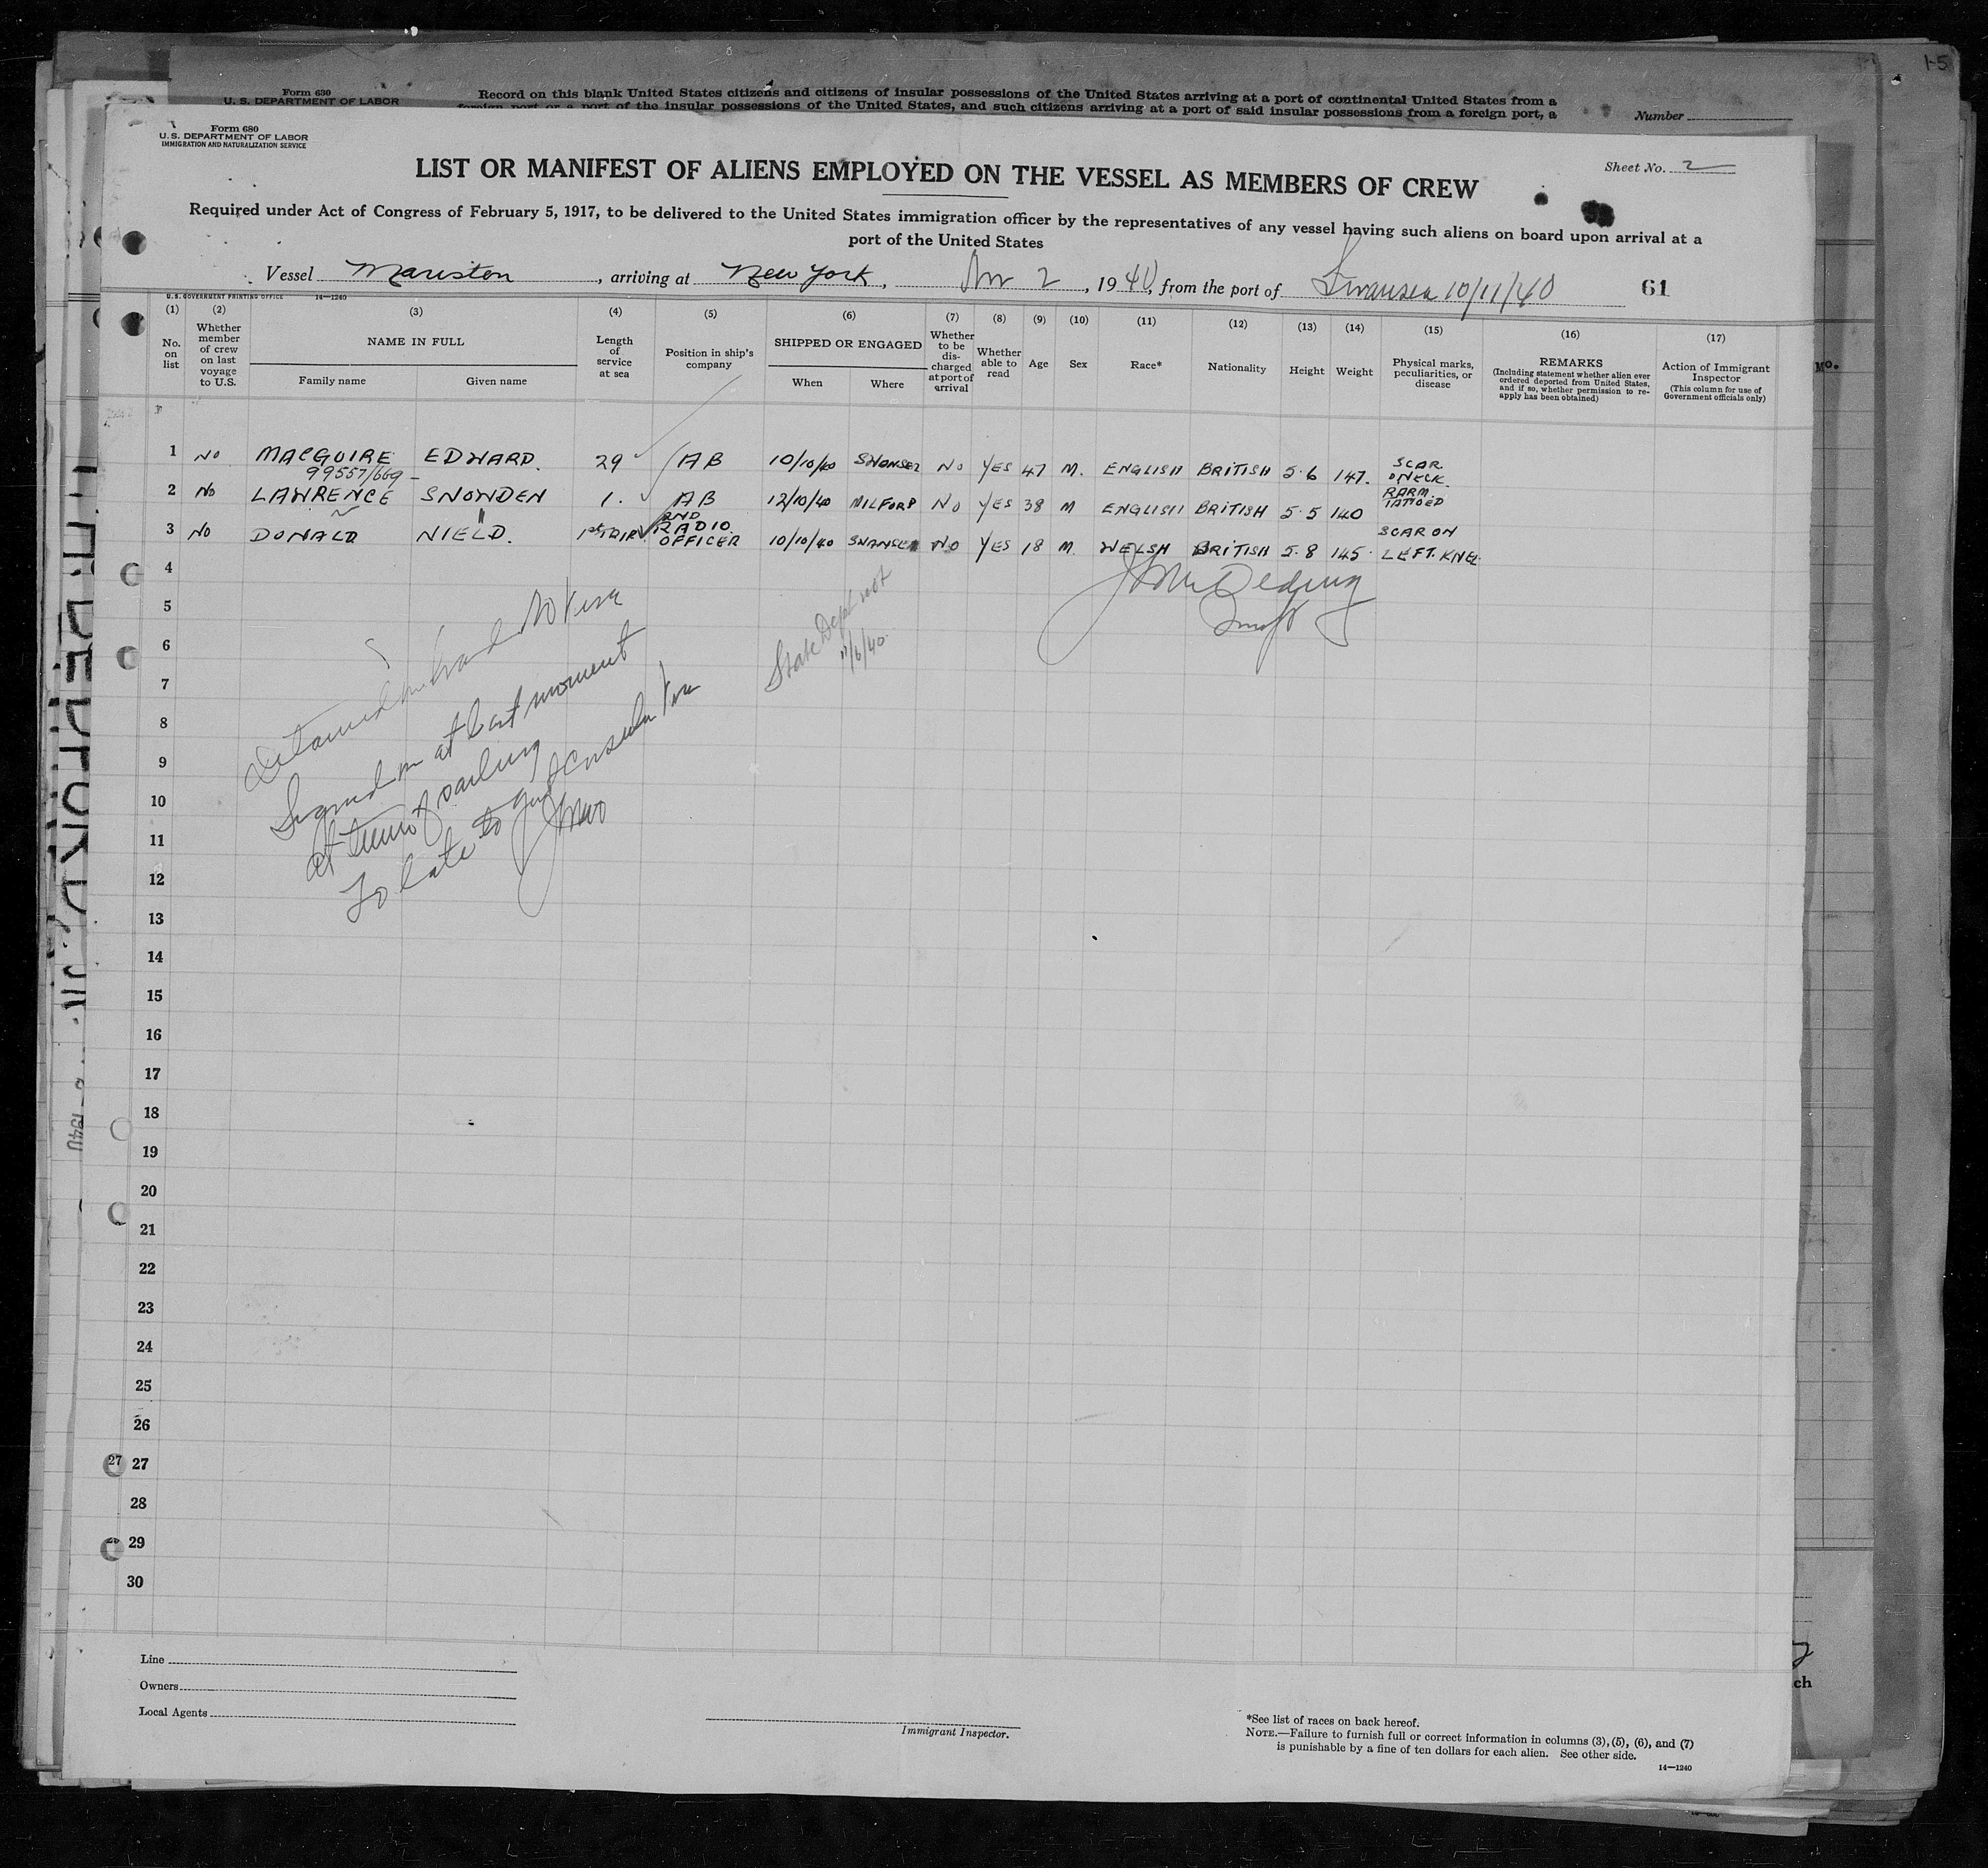 1-5
Form 630
U. S. DEPARTMENT OF LABOR
Record on this blank United States citizens and citizens of insular possessions of the United States arriving at a port of continental United States from a
foreign port or a port of the insular possessions of the United States, and such citizens arriving at a port of said insular possessions from a foreign port, a
Number
Form 680
U. S. DEPARTMENT OF LABOR
IMMIGRATION AND NATURALIZATION SERVICE
Sheet No. 2
LIST OR MANIFEST OF ALIENS EMPLOYED ON THE VESSEL AS MEMBERS OF CREW
Required under Act of Congress of February 5, 1917, to be delivered to the United States immigration officer by the representatives of any vessel having such aliens on board upon arrival at a
port of the United States
Vessel Mariston, arriving at New York, Nov 2, 1940, from the port of Swansea 10/11/40 61
U. S. GOVERNMENT PRINTING OFFICE 14—1240
(1) No. on list
(2) Whether member of crew on last voyage to U.S.
(3) NAME IN FULL Family name Given name
(4) Length of service at sea
(5) Position in ship's company
(6) SHIPPED OR ENGAGED When Where
(7) Whether to be discharged at port of arrival
(8) Whether able to read
(9) Age
(10) Sex
(11) Race*
(12) Nationality
(13) Height
(14) Weight
(15) Physical marks, peculiarities, or disease
(16) REMARKS (Including statement whether alien ever ordered deported from United States, and if so, whether permission to re-apply has been obtained)
(17) Action of Immigrant Inspector (This column for use of Government officials only)
1 NO MACGUIRE EDWARD. 29 AB 10/10/40 SWANSEA NO YES 47 M. ENGLISH BRITISH 5·6 147. SCAR ON NECK.
99557/669
2 NO LAWRENCE SNOWDEN 1. AB 12/10/40 MILFORD NO YES 38 M ENGLISH BRITISH 5·5 140 R ARM TATTOED
3 NO DONALD NIELD. 1ST TRIP. 2ND RADIO OFFICER 10/10/40 SWANSEA NO YES 18 M. WELSH BRITISH 5·8 145· SCAR ON LEFT KNEE
4
5
6
7
8
9
10
11
12
13
14
15
16
17
18
19
20
21
22
23
24
25
26
27
28
29
30
Detained on board No Visa
Signed on at last moment
at time of sailing
To late to get Consular Visa
State Dept not
11/6/40
27
29
1940
Line
Owners
Local Agents
Immigrant Inspector.
*See list of races on back hereof.
NOTE.—Failure to furnish full or correct information in columns (3), (5), (6), and (7)
is punishable by a fine of ten dollars for each alien. See other side.
14—1240